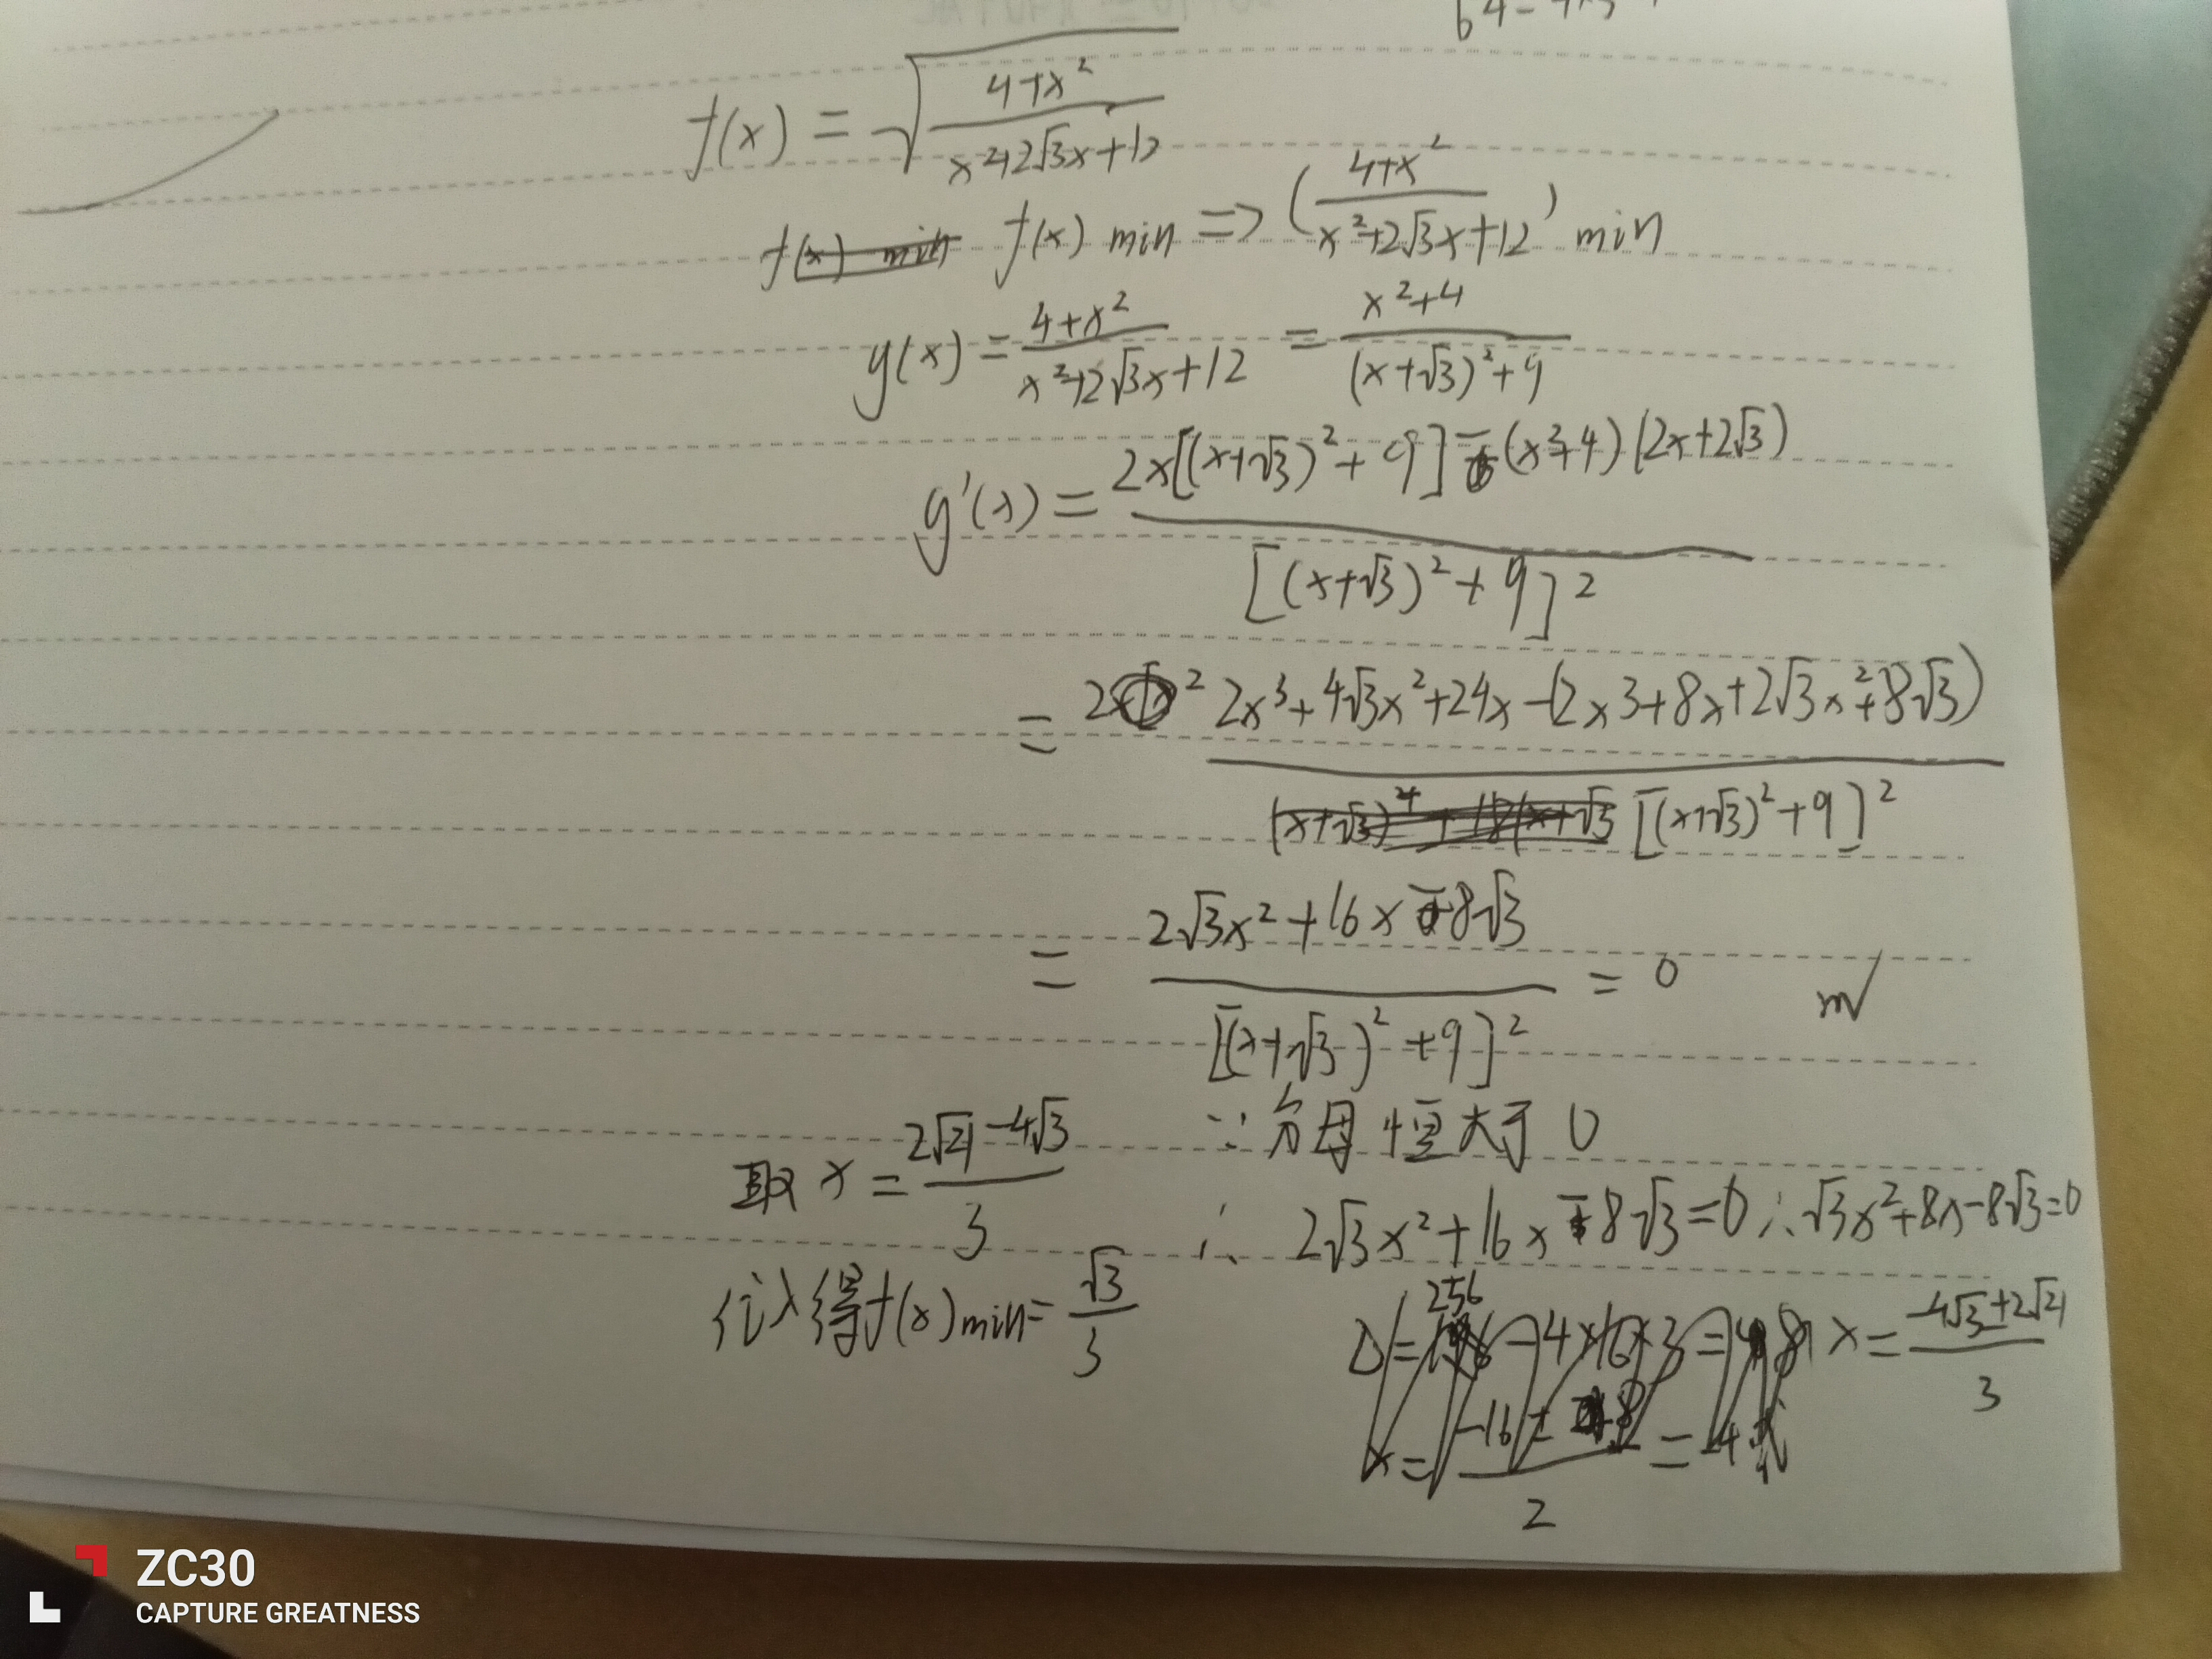 f(x) = √((4+x²)/(x²+2√3x+12))
f(x) min f(x) min => ((4+x²)/(x²+2√3x+12)) min
g(x) = (4+x²)/(x²+2√3x+12) = (x²+4)/((x+√3)²+9)
g'(x) = (2x[(x+√3)²+9] - (x²+4)(2x+2√3))/[(x+√3)²+9]²
= (2x³+4√3x²+24x-(2x3+8x+2√3x²+8√3))/[(x+√3)²+9]²
= (2√3x²+16x-8√3)/[(x+√3)²+9]² = 0
∵ 分母恒大于0
取 x = (2√21-4√3)/3
∴ 2√3x²+16x-8√3=0 ∴ √3x²+8x-8√3=0
代入得f(x)min = √3/3
x = (-4√3+2√21)/3
ZC30
CAPTURE GREATNESS